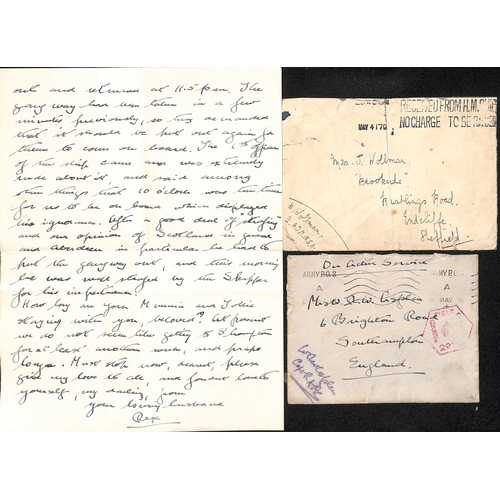 out and returned at 11.5 p.m. The
gang way had been taken in a few
minutes previously, so they demanded
that it should be put out again for
them to come on board. The 1st officer
of the ship came and was extremely
rude about it and said among
other things that 10 o'clock was the time
for us to be on board which displayed
his ignorance. After a good deal of
and our opinion of Scotland in general
and Aberdeen in particular he had to
put the gangway out, and this morning
he was well by the Skipper
for his impertinence.
How long are your Mummie and
staying with you, beloved? At present
we do not seem like getting to S'hampton
for at least another week, and perhaps
longer. Must stop now, dearest, please
give my love to all, and fondest love to
yourself, my darling, from
your loving husband
Rex
LONDON
MAY 4 17
RECEIVED FROM H.M. SHIP
NO CHARGE TO BE RAISED
Mrs. J. Wollman
"Brookside"
Rustlings Road,
Endcliffe
Sheffield
On Active Service
ARMY P.O. 3
A
ARMY P.O. 3
A
MAY 16
6 Brighton Road
Southampton
England.